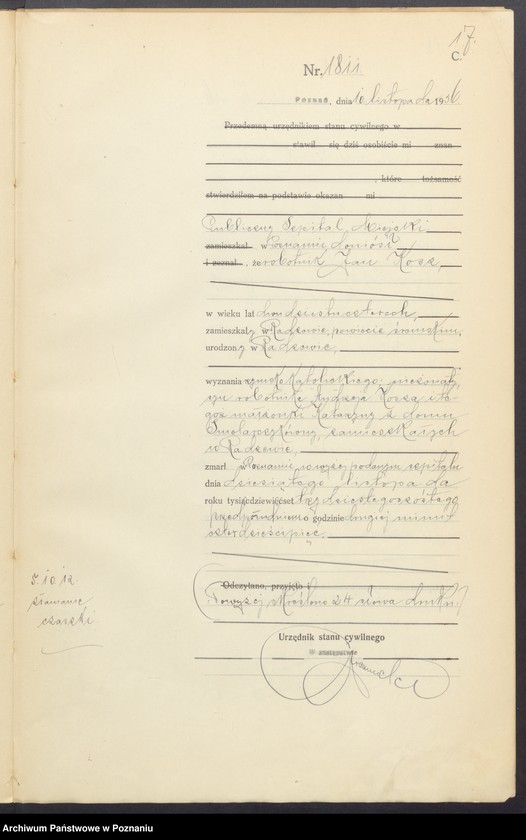 17.
C.
Nr. 1811
Poznań, dnia 10 listopada 1936
Przedemną urzędnikiem stanu cywilnego w
stawił się dziś osobiście mi znan
, które tożsamość
stwierdziłem na podstawie okazan mi
Publiczny Szpital Miejski
zamieszkał w Poznaniu doniósł
i zeznał, że robotnik Jan Kosz,
w wieku lat dwudziestuczterech,
zamieszkały w Radzewie, powiecie śremskim,
urodzony w Radzewie,
wyznania rzymsko katolickiego, nieżonaty,
syn robotnika Andrzeja Kosza i te-
goż małżonki Katarzyny z domu
zamieszkałych
w Radzewie,
zmarł w Poznaniu w wyżej podanym szpitalu
dnia dziesiątego listopada
roku tysiącdziewięćset trzydziestegoszóstego
przedpołudniem o godzinie drugiej minut
czterdzieścipięć.
Odczytano, przyjęto i
Powyżej skreślono 24 słowa druku.
Urzędnik stanu cywilnego
W zastępstwie
Archiwum Państwowe w Poznaniu